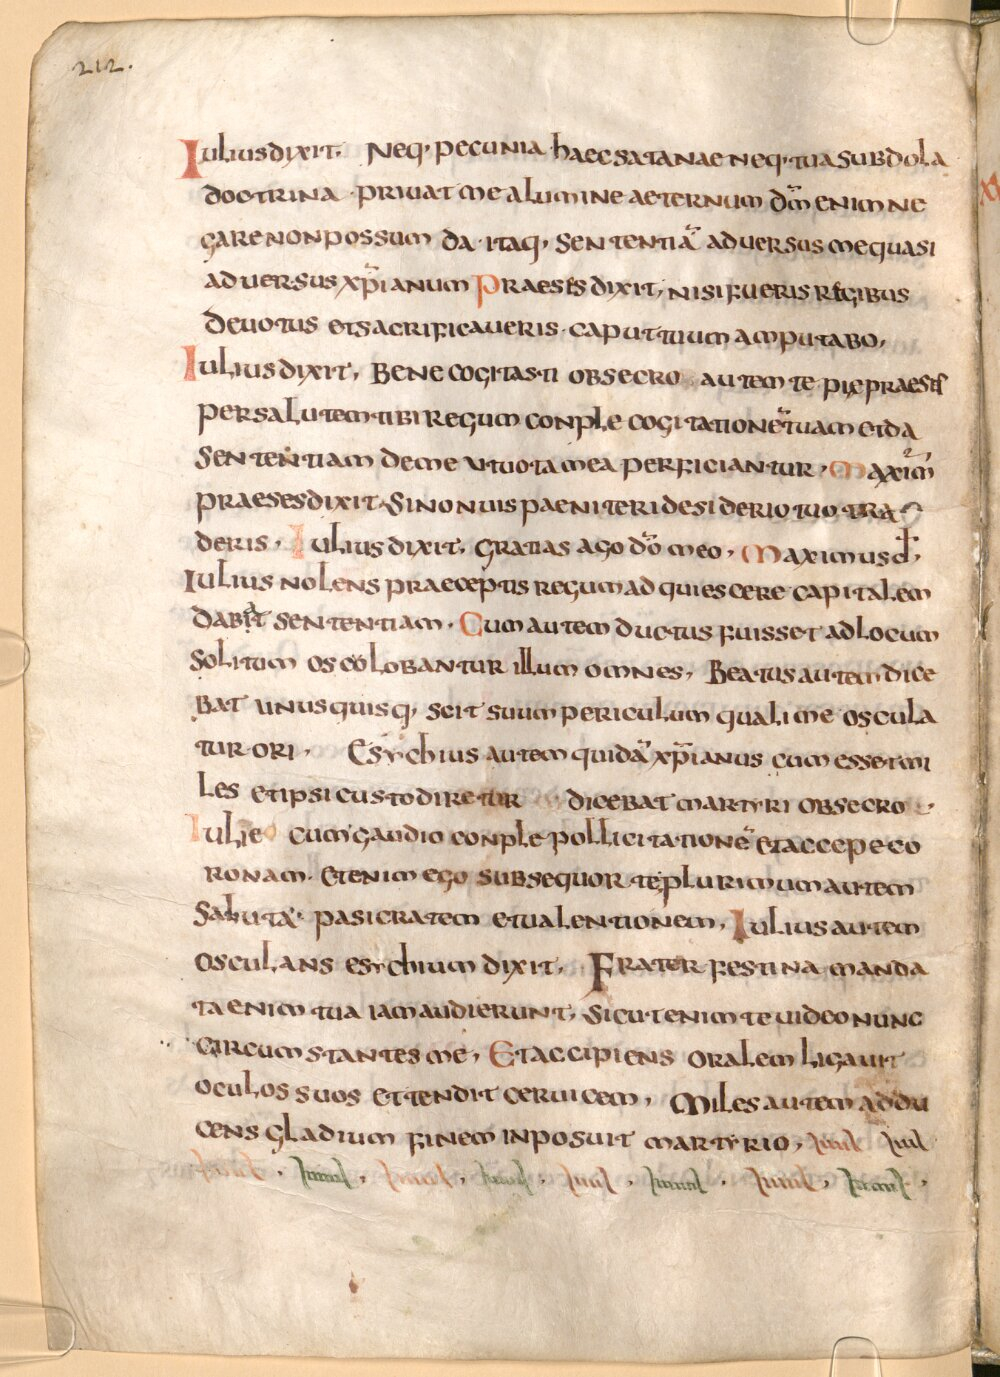 212.
Iulius dixit. Neq· pecunia haec satanae neq· tua subdola
doctrina · priuat me a lumine aeternum dm̄ enim ne
gare non possum da · itaq· sententiā aduersus me quasi
aduersus xp̄ianum Praeses dixit, nisi fueris regibus
deuotus et sacrificaueris · caput tuum amputabo,
Iulius dixit, Bene cogitasti obsecro autem te pie praeses
per salutem tibi regum conple cogitationē tuam et da
sententiam de me ut uota mea perficiantur · Maxim
praeses dixit · Si non uis paeniteri desiderio tuo tra
deris, Iulius dixit, gratias ago dō meo, Maximus d̄,
Iulius nolens praeceptis regum adquiescere capitalem
dabit sententiam · Cum autem ductus fuisset ad locum
solitum oscolobantur illum omnes, Beatus autem dice
bat unusquisq· scit suum periculum quali me oscula
tur ori, Esychius autem quidā xp̄ianus cum esset mi
les et ipsi custodiretur dicebat martyri obsecro ·
Iulie cum gaudio conple pollicitationē et accepe co
ronam · Etenim ego subsequor te plurimum autem
salutā · pasicratem et ualentionem, Iulius autem
osculans esychium dixit, Frater festina manda
ta enim tua iam audierunt, Sicut enim te uideo nunc
circumstantes me, Et accipiens oralem ligauit
oculos suos et tendit ceruicem, Miles autem addu
cens gladium finem inposuit martyrio,